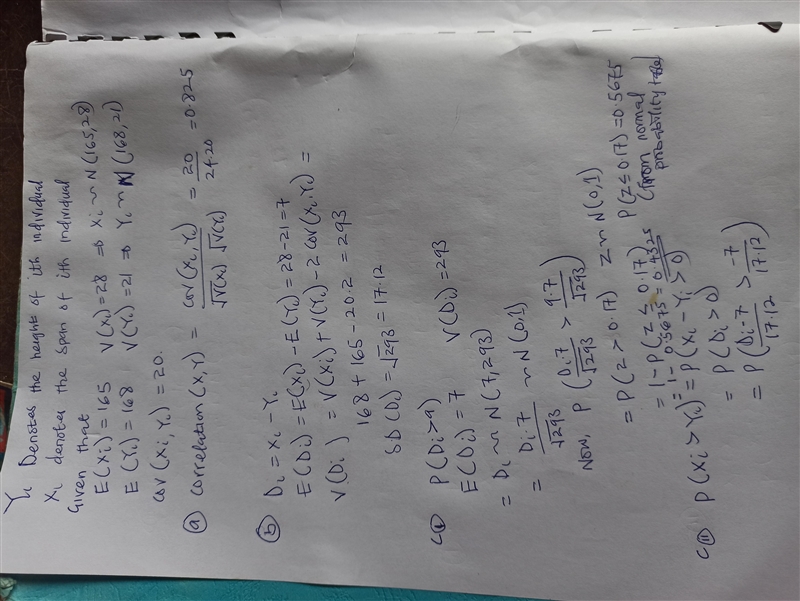 Yi Denotes the heights of ith individual
Xi denotes the span of ith individual
Given that
E(Xi)=165 V(Xi)=28 ⇒ Xi ~ N(165,28)
E(Yi)=168 V(Yi)=21 ⇒ Yi ~ N(168,21)
cov(Xi,Yi)=20.
(a) correlation(X,Y) = cov(Xi,Yi) / √V(Xi) √V(Yi) = 20 / 24.20 = 0.825
(b) Di = Xi - Yi
E(Di) = E(Xi) - E(Yi) = 28-21=7
V(Di) = V(Xi)+V(Yi)-2cov(Xi.Yi) =
168 + 165 - 20.2 = 293
SD(Di) = √293 = 17.12
c(i) P(Di>9)
E(Di)=7 V(Di)=293
= Di ~ N(7,293)
= Di-7 / √293 ~ N(0,1)
Now, P(Di-7 / √293 > 9-7 / √293)
= P(Z > 0.17) Z ~ N(0,1)
= 1-P(Z ≤ 0.17) P(Z≤0.17)=0.5675
= 1-0.5675 = 0.4325 (from normal probability table)
c(ii) P(Xi > Yi) = P(Xi - Yi > 0)
= P(Di > 0)
= P(Di-7 / 17.12 > -7 / 17.12)